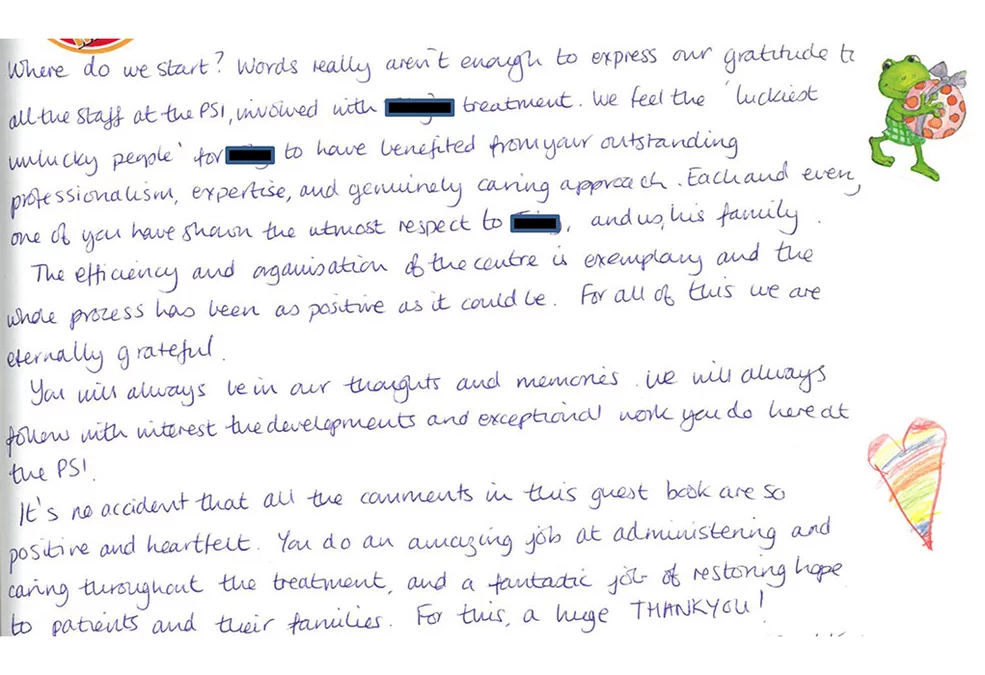 Where do we start? Words really aren't enough to express our gratitude to
all the staff at the PSI, involved with treatment. We feel the 'luckiest
unlucky people' for to have benefited from your outstanding
professionalism, expertise, and genuinely caring approach. Each and every
one of you have shown the utmost respect to , and us, his family.
The efficiency and organisation of the centre is exemplary and the
whole process has been as positive as it could be. For all of this we are
eternally grateful.
You will always be in our thoughts and memories. We will always
follow with interest the developments and exceptional work you do here at
the PSI.
It's no accident that all the comments in this guest book are so
positive and heartfelt. You do an amazing job at administering and
caring throughout the treatment, and a fantastic job of restoring hope
to patients and their families. For this, a huge THANKYOU!